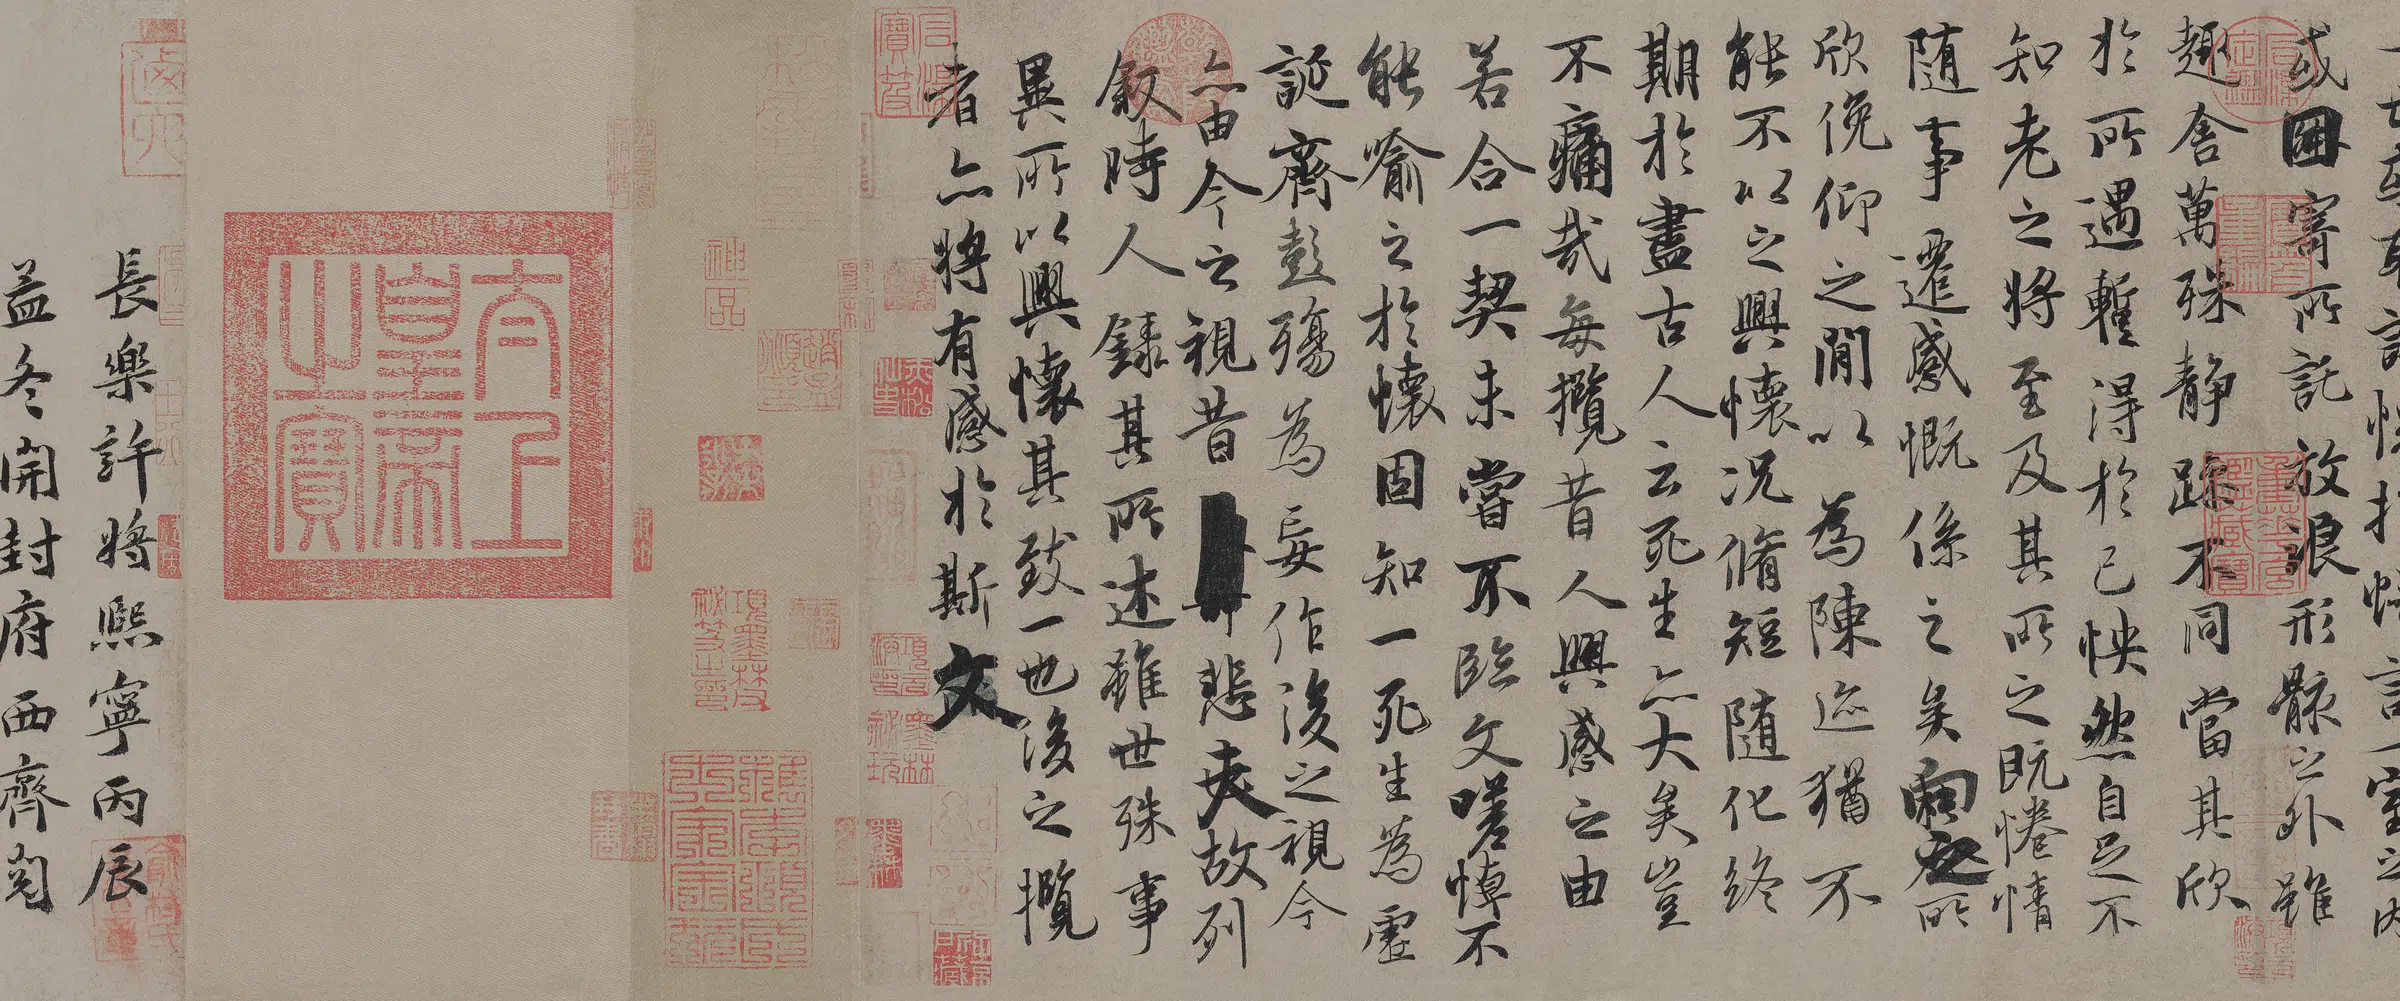 一世或取諸懷抱悟言一室之内
或因寄所託放浪形骸之外雖
趣舍萬殊静躁不同當其欣
於所遇蹔得於己怏然自足不
知老之將至及其所之既惓情
随事遷感慨係之矣向之所
欣俛仰之閒以為陳迹猶不
能不以之興懷况脩短随化終
期於盡古人云死生亦大矣豈
不痛哉每攬昔人興感之由
若合一契未嘗不臨文嗟悼不
能喻之於懷固知一死生為虚
誕齊彭殤為妄作後之視今
亦由今之視昔悲夫故列
叙時人録其所述雖世殊事
異所以興懷其致一也後之攬
者亦將有感於斯文
神品
項墨林祕笈之印
太上
皇帝
之寶
長樂許將熙寧丙辰
孟冬開封府西齊閱